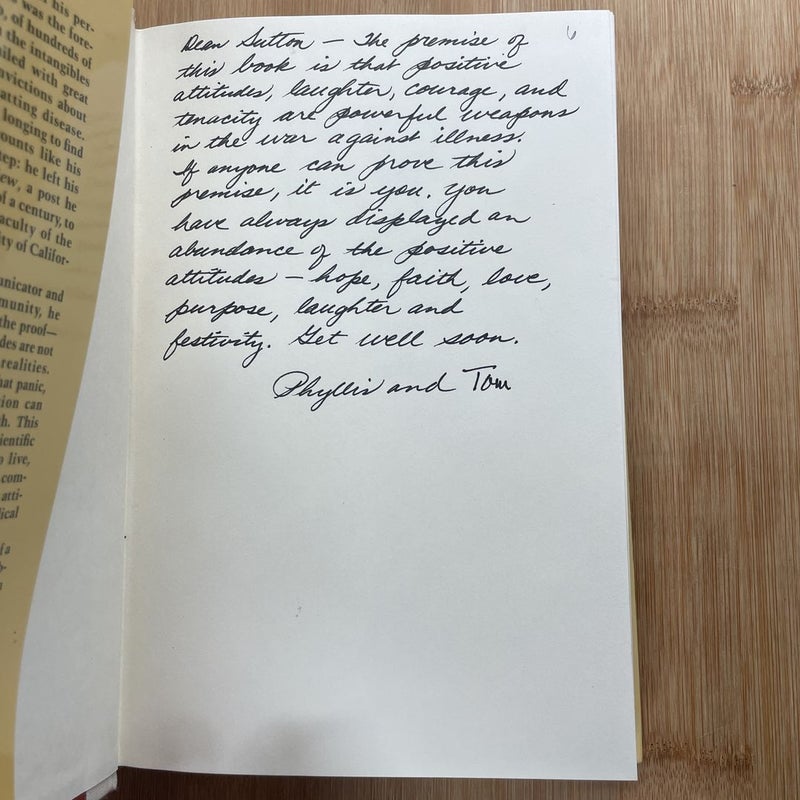 his per-
was the fore-
of hundreds of
the intangibles
iled with great
nvictions about
atting disease.
longing to find
ounts like his
tep: he left his
ew, a post he
of a century, to
aculty of the
ity of Califor-
unicator and
munity, he
the proof—
des are not
realities.
hat panic,
tion can
th. This
ientific
o live,
com-
atti-
lical
6
Dear Sutton — The premise of
this book is that positive
attitudes, laughter, courage, and
tenacity are powerful weapons
in the war against illness.
If anyone can prove this
premise, it is you. You
have always displayed an
abundance of the positive
attitudes — hope, faith, love,
purpose, laughter and
festivity. Get well soon.
Phyllis and Tom